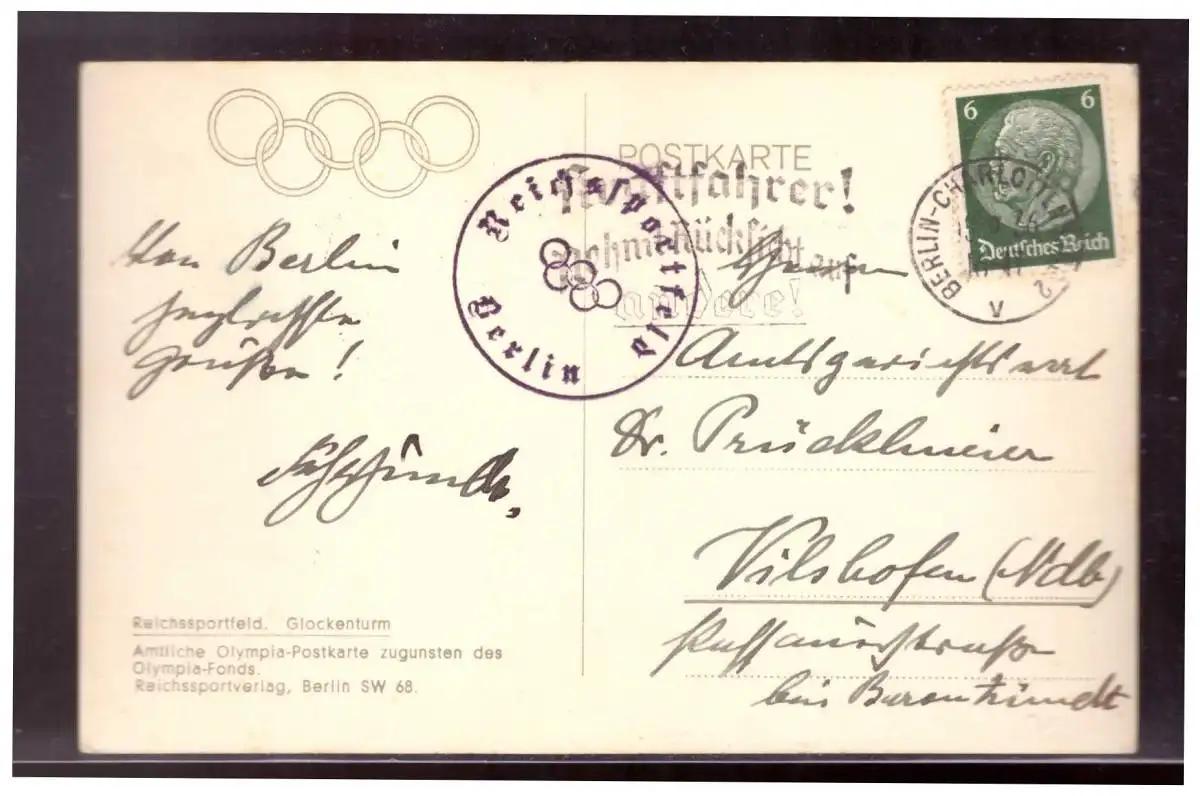 POSTKARTE
6 6
Deutsches Reich
BERLIN-CHARLOTTEN
2
V
Kraftfahrer!
nehmt Rücksicht auf
andere!
Reichssportfeld
Berlin
Von Berlin
herzlichste
Grüße!
Herrn
Amtsgerichtsrat
Dr. Prücklmeier
Vilshofen (Ndb)
Passauerstraße
bei
Reichssportfeld. Glockenturm
Amtliche Olympia-Postkarte zugunsten des
Olympia-Fonds.
Reichssportverlag, Berlin SW 68.